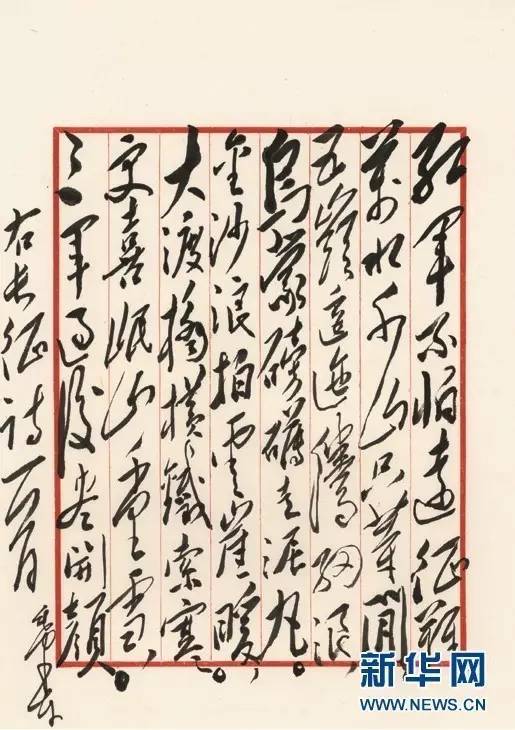 红軍不怕遠征難
萬水千山只等閒。
五嶺逶迤騰细浪，
烏蒙磅礴走泥丸。
金沙浪拍云崖暖，
大渡橋横鐵索寒。
更喜岷山千里雪，
三軍过後尽開顏。
右长征诗一首
毛泽东
新华网
WWW.NEWS.CN